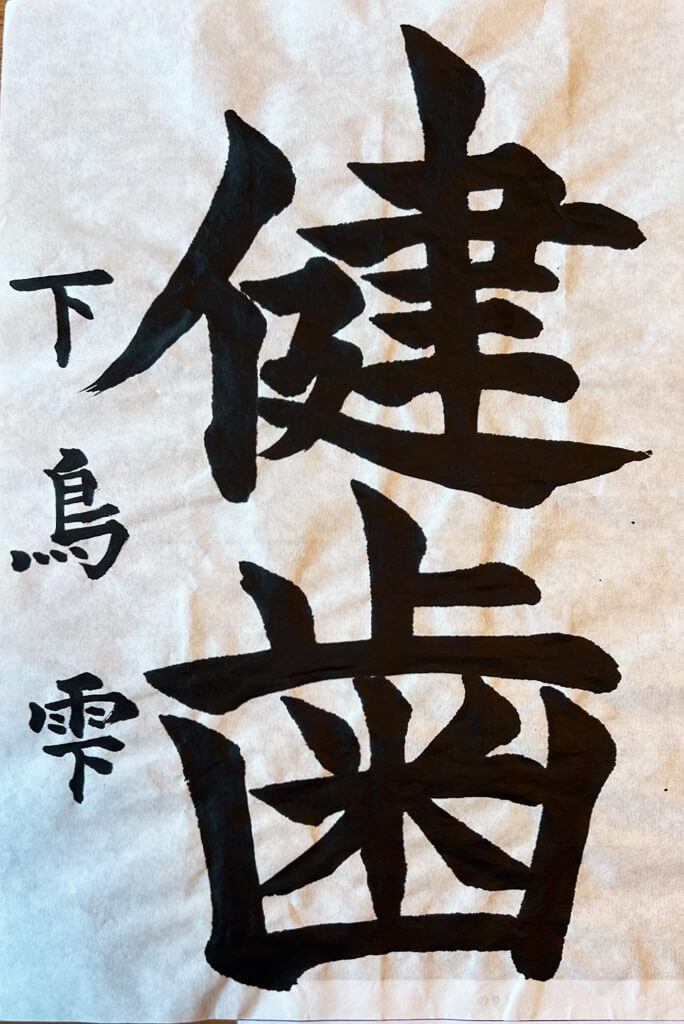 健歯
下鳥雫